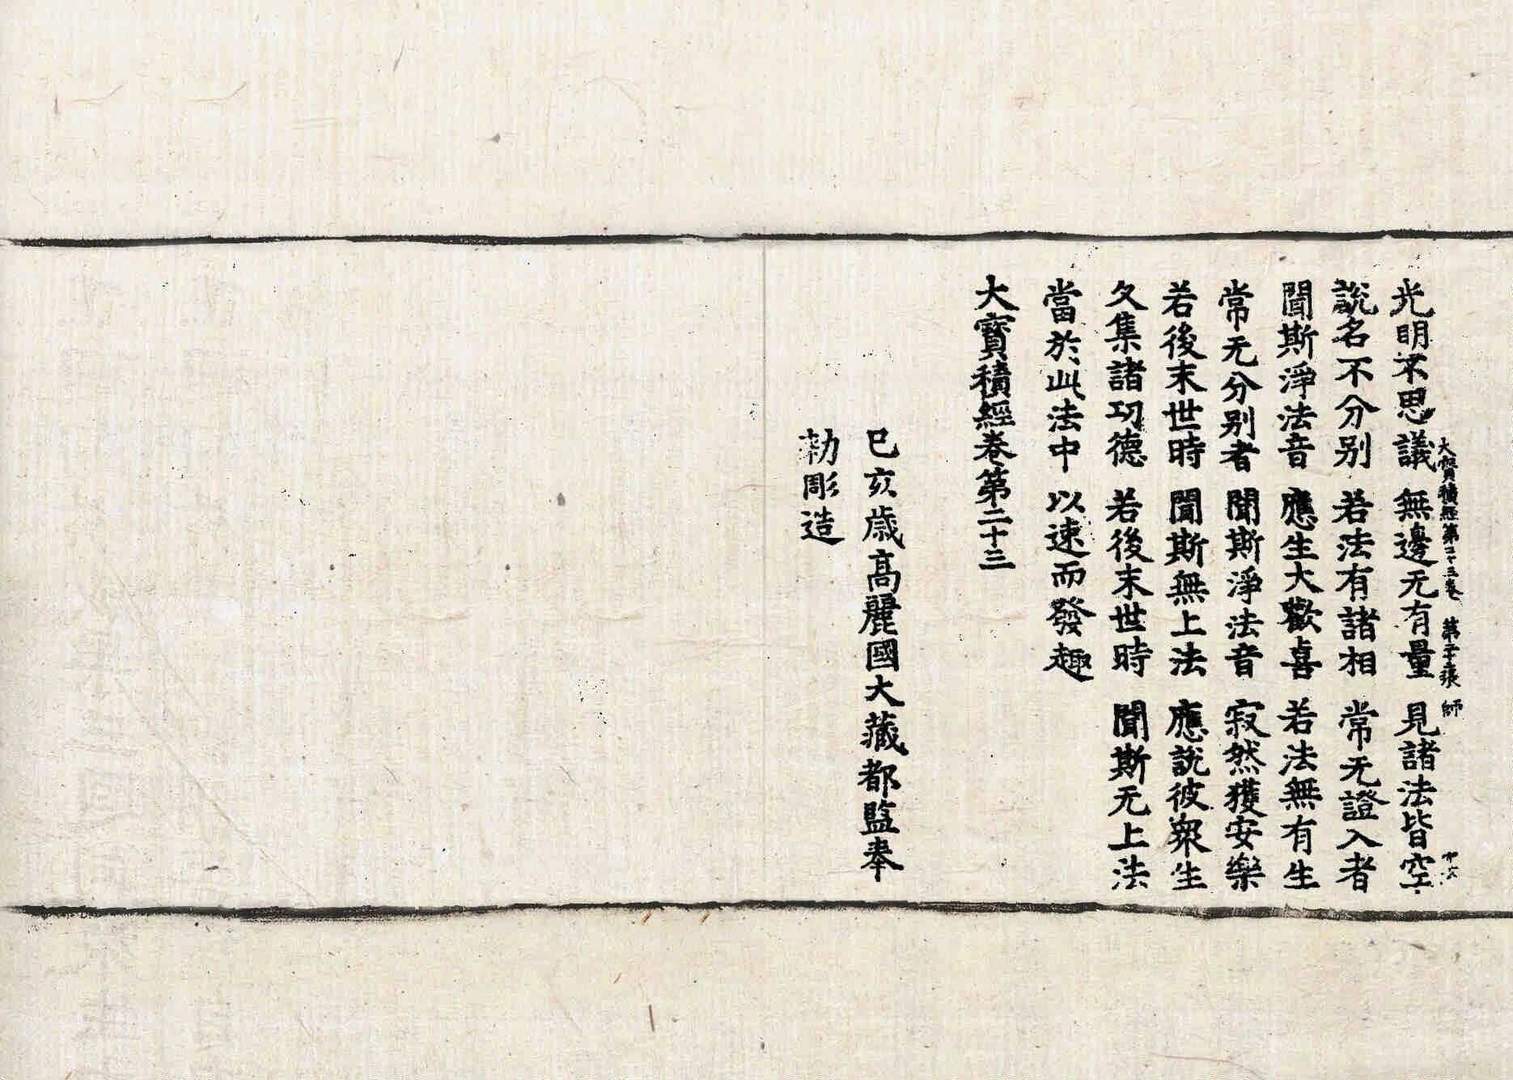 大寶積經第二十三卷 第二十張 師
光明不思議 無邊无有量 見諸法皆空
說名不分别 若法有諸相 常无證入者
聞斯淨法音 應生大歡喜 若法無有生
常无分别者 聞斯淨法音 寂然獲安樂
若後末世時 聞斯無上法 應說彼衆生
久集諸功德 若後末世時 聞斯无上法
當於此法中 以速而發趣
大寶積經卷第二十三
己亥歲高麗國大藏都監奉
勑彫造